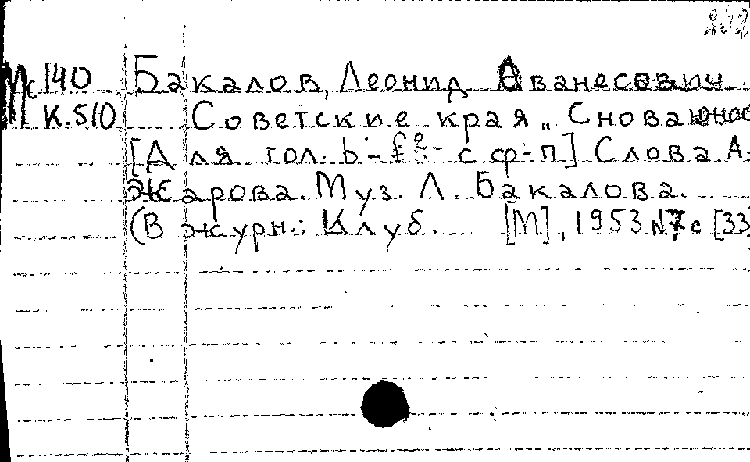 Мс 140 Бакалов, Леонид Аванесович.
К.510 Советские края „ Снова юнос
[Для гол. b - f² - с ф-п] Слова А.
Жарова. Муз. Л. Бакалова.
(В журн.: Клуб. [М], 1953 №7 с [33